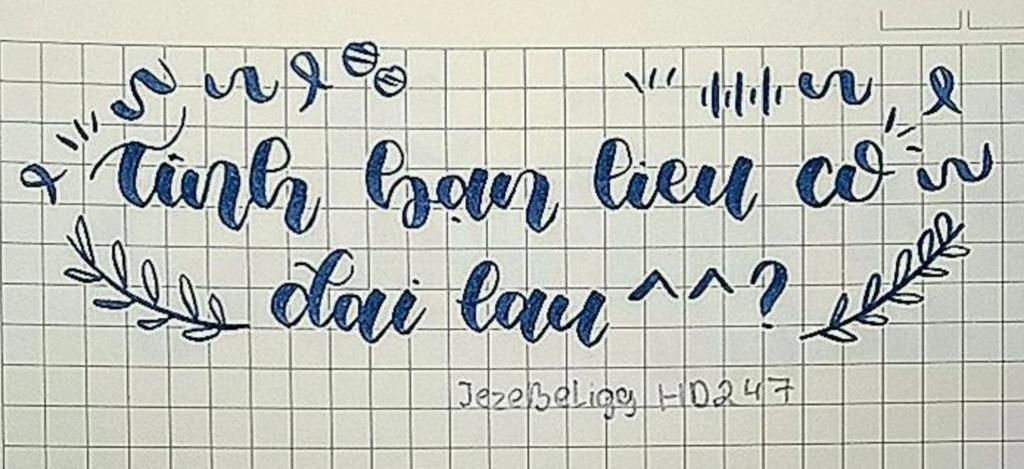 Tình bạn lieu có
dai lau ^^?
JezeBeLigg HD247